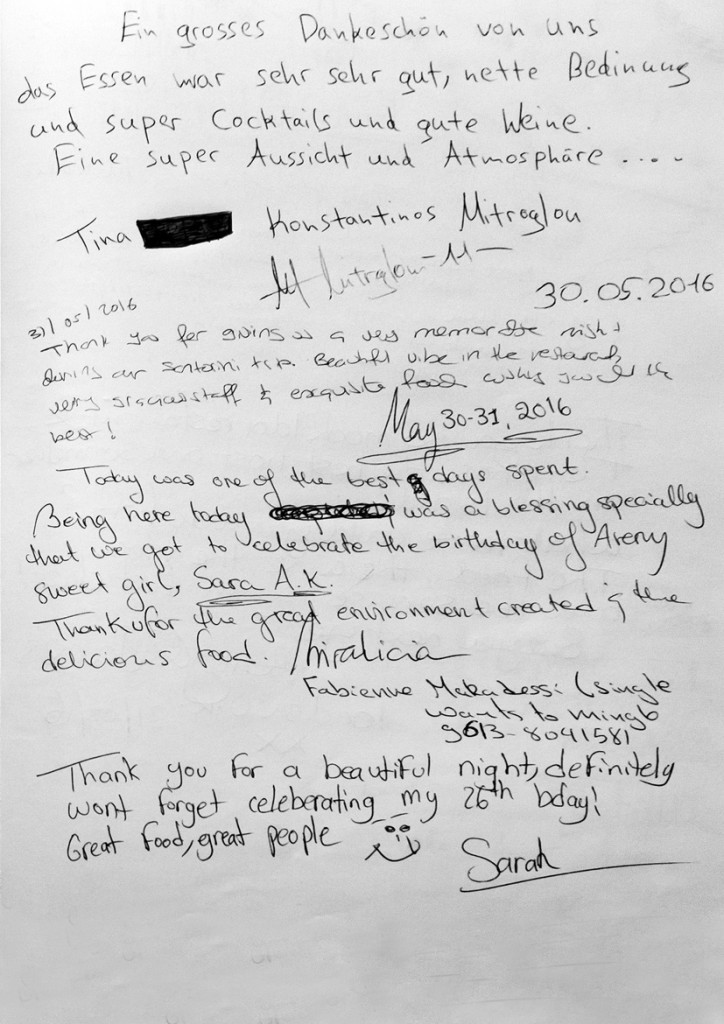 Ein grosses Dankeschön von uns
das Essen war sehr sehr gut, nette Bedinung
und super Cocktails und gute Weine.
Eine super Aussicht und Atmosphäre ....
Tina Konstantinos Mitroglou
30.05.2016
31/05/2016
Thank you for giving us a very memorable night
during our Santorini trip. Beautiful vibe in the restaurant,
very staff & exquisite food you all the
best!
May 30-31, 2016
Today was one of the best days spent.
Being here today was a blessing specially
that we got to celebrate the birthday of A very
sweet girl, Sara A.K.
Thank u for the great environment created & the
delicious food.
Fabienne (single
wants to mingle
9613-8041581
Thank you for a beautiful night, definitely
wont forget celeberating my 26th bday!
Great food, great people
Sarah